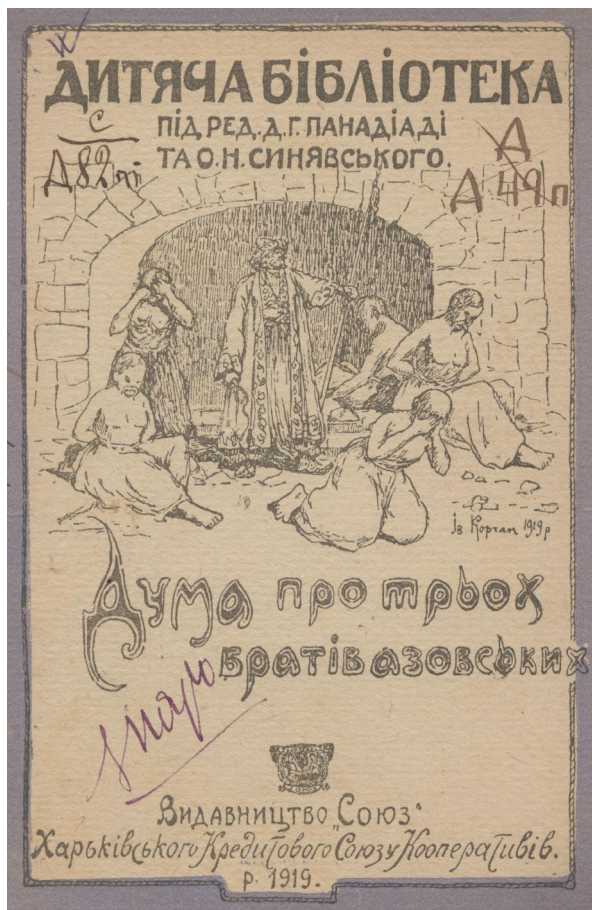 ДИТЯЧА БІБЛІОТЕКА
ПІД РЕД. Д. Г. ПАНАДІАДІ
ТА О. Н. СИНЯВСЬКОГО.
С
Д82
Д
Д 49п
Ів Корган 1919 р
Дума про трьох
братів азовських
Видавництво „Союз“
Харьківського Кредитового Союзу Кооперативів.
р. 1919.